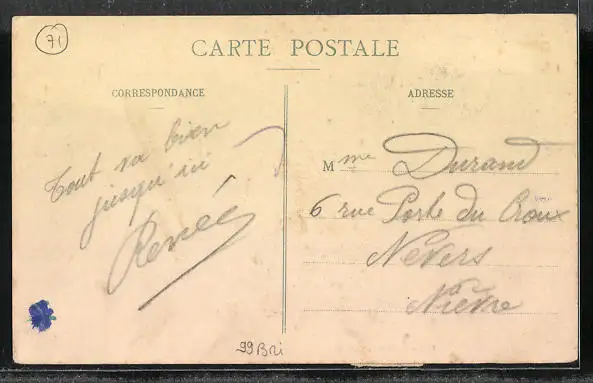 71
CARTE POSTALE
CORRESPONDANCE
Tout va bien
jusqu'ici
Renée
ADRESSE
Mme Durand
6 rue Porte du Croux
Nevers
Nièvre
99 Bri